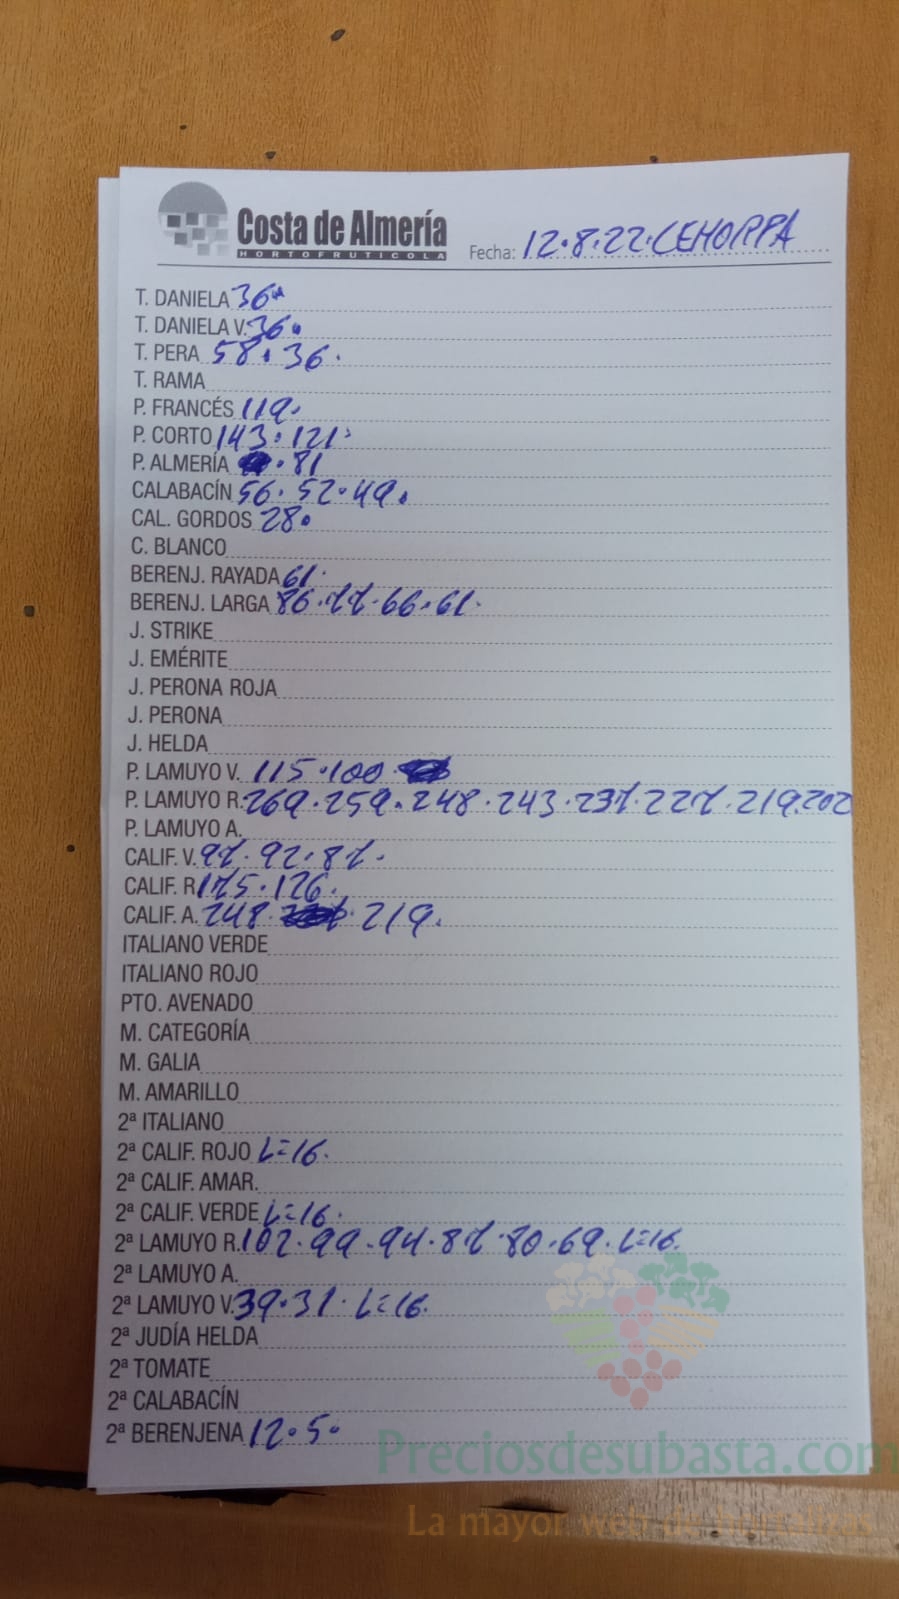 Costa de Almería
HORTOFRUTICOLA
Fecha: 12.8.22. CEHORPA
T. DANIELA 36.
T. DANIELA V. 36.
T. PERA 58. 36.
T. RAMA
P. FRANCÉS 119.
P. CORTO 143. 121.
P. ALMERÍA . 81
CALABACÍN 56. 52. 49.
CAL. GORDOS 28.
C. BLANCO
BERENJ. RAYADA 61.
BERENJ. LARGA 86. 77. 66. 61.
J. STRIKE
J. EMÉRITE
J. PERONA ROJA
J. PERONA
J. HELDA
P. LAMUYO V. 115. 100.
P. LAMUYO R. 269. 259. 248. 243. 237. 227. 219. 202
P. LAMUYO A.
CALIF. V. 97. 92. 87.
CALIF. R. 175. 126.
CALIF. A. 248. 219.
ITALIANO VERDE
ITALIANO ROJO
PTO. AVENADO
M. CATEGORÍA
M. GALIA
M. AMARILLO
2ª ITALIANO
2ª CALIF. ROJO L=16.
2ª CALIF. AMAR.
2ª CALIF. VERDE L=16.
2ª LAMUYO R. 102. 99. 94. 87. 80. 69. L=16.
2ª LAMUYO A.
2ª LAMUYO V. 39. 31. L=16.
2ª JUDÍA HELDA
2ª TOMATE
2ª CALABACÍN
2ª BERENJENA 12. 5.
Preciosdesubasta.com
La mayor web de hortalizas